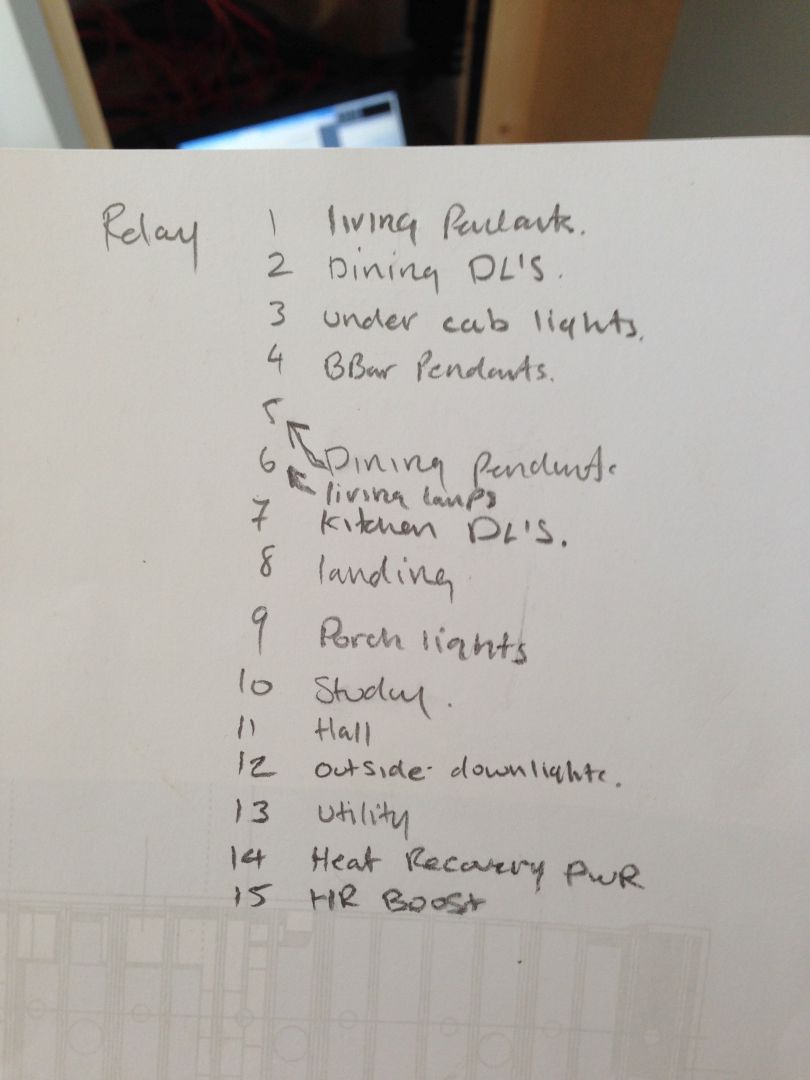 Relay 1 living Pendants.
2 Dining DL'S.
3 under cab lights.
4 BBar Pendants.
5
6 Dining Pendants.
living lamps
7 Kitchen DL'S.
8 landing
9 Porch lights
10 Study.
11 Hall
12 outside downlights.
13 utility
14 Heat Recovery PWR
15 HR BOOST